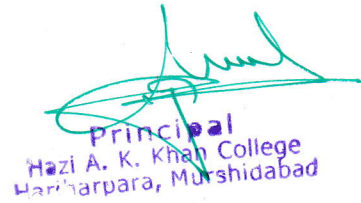 Principal
Hazi A. K. Khan College
Hariharpara, Murshidabad